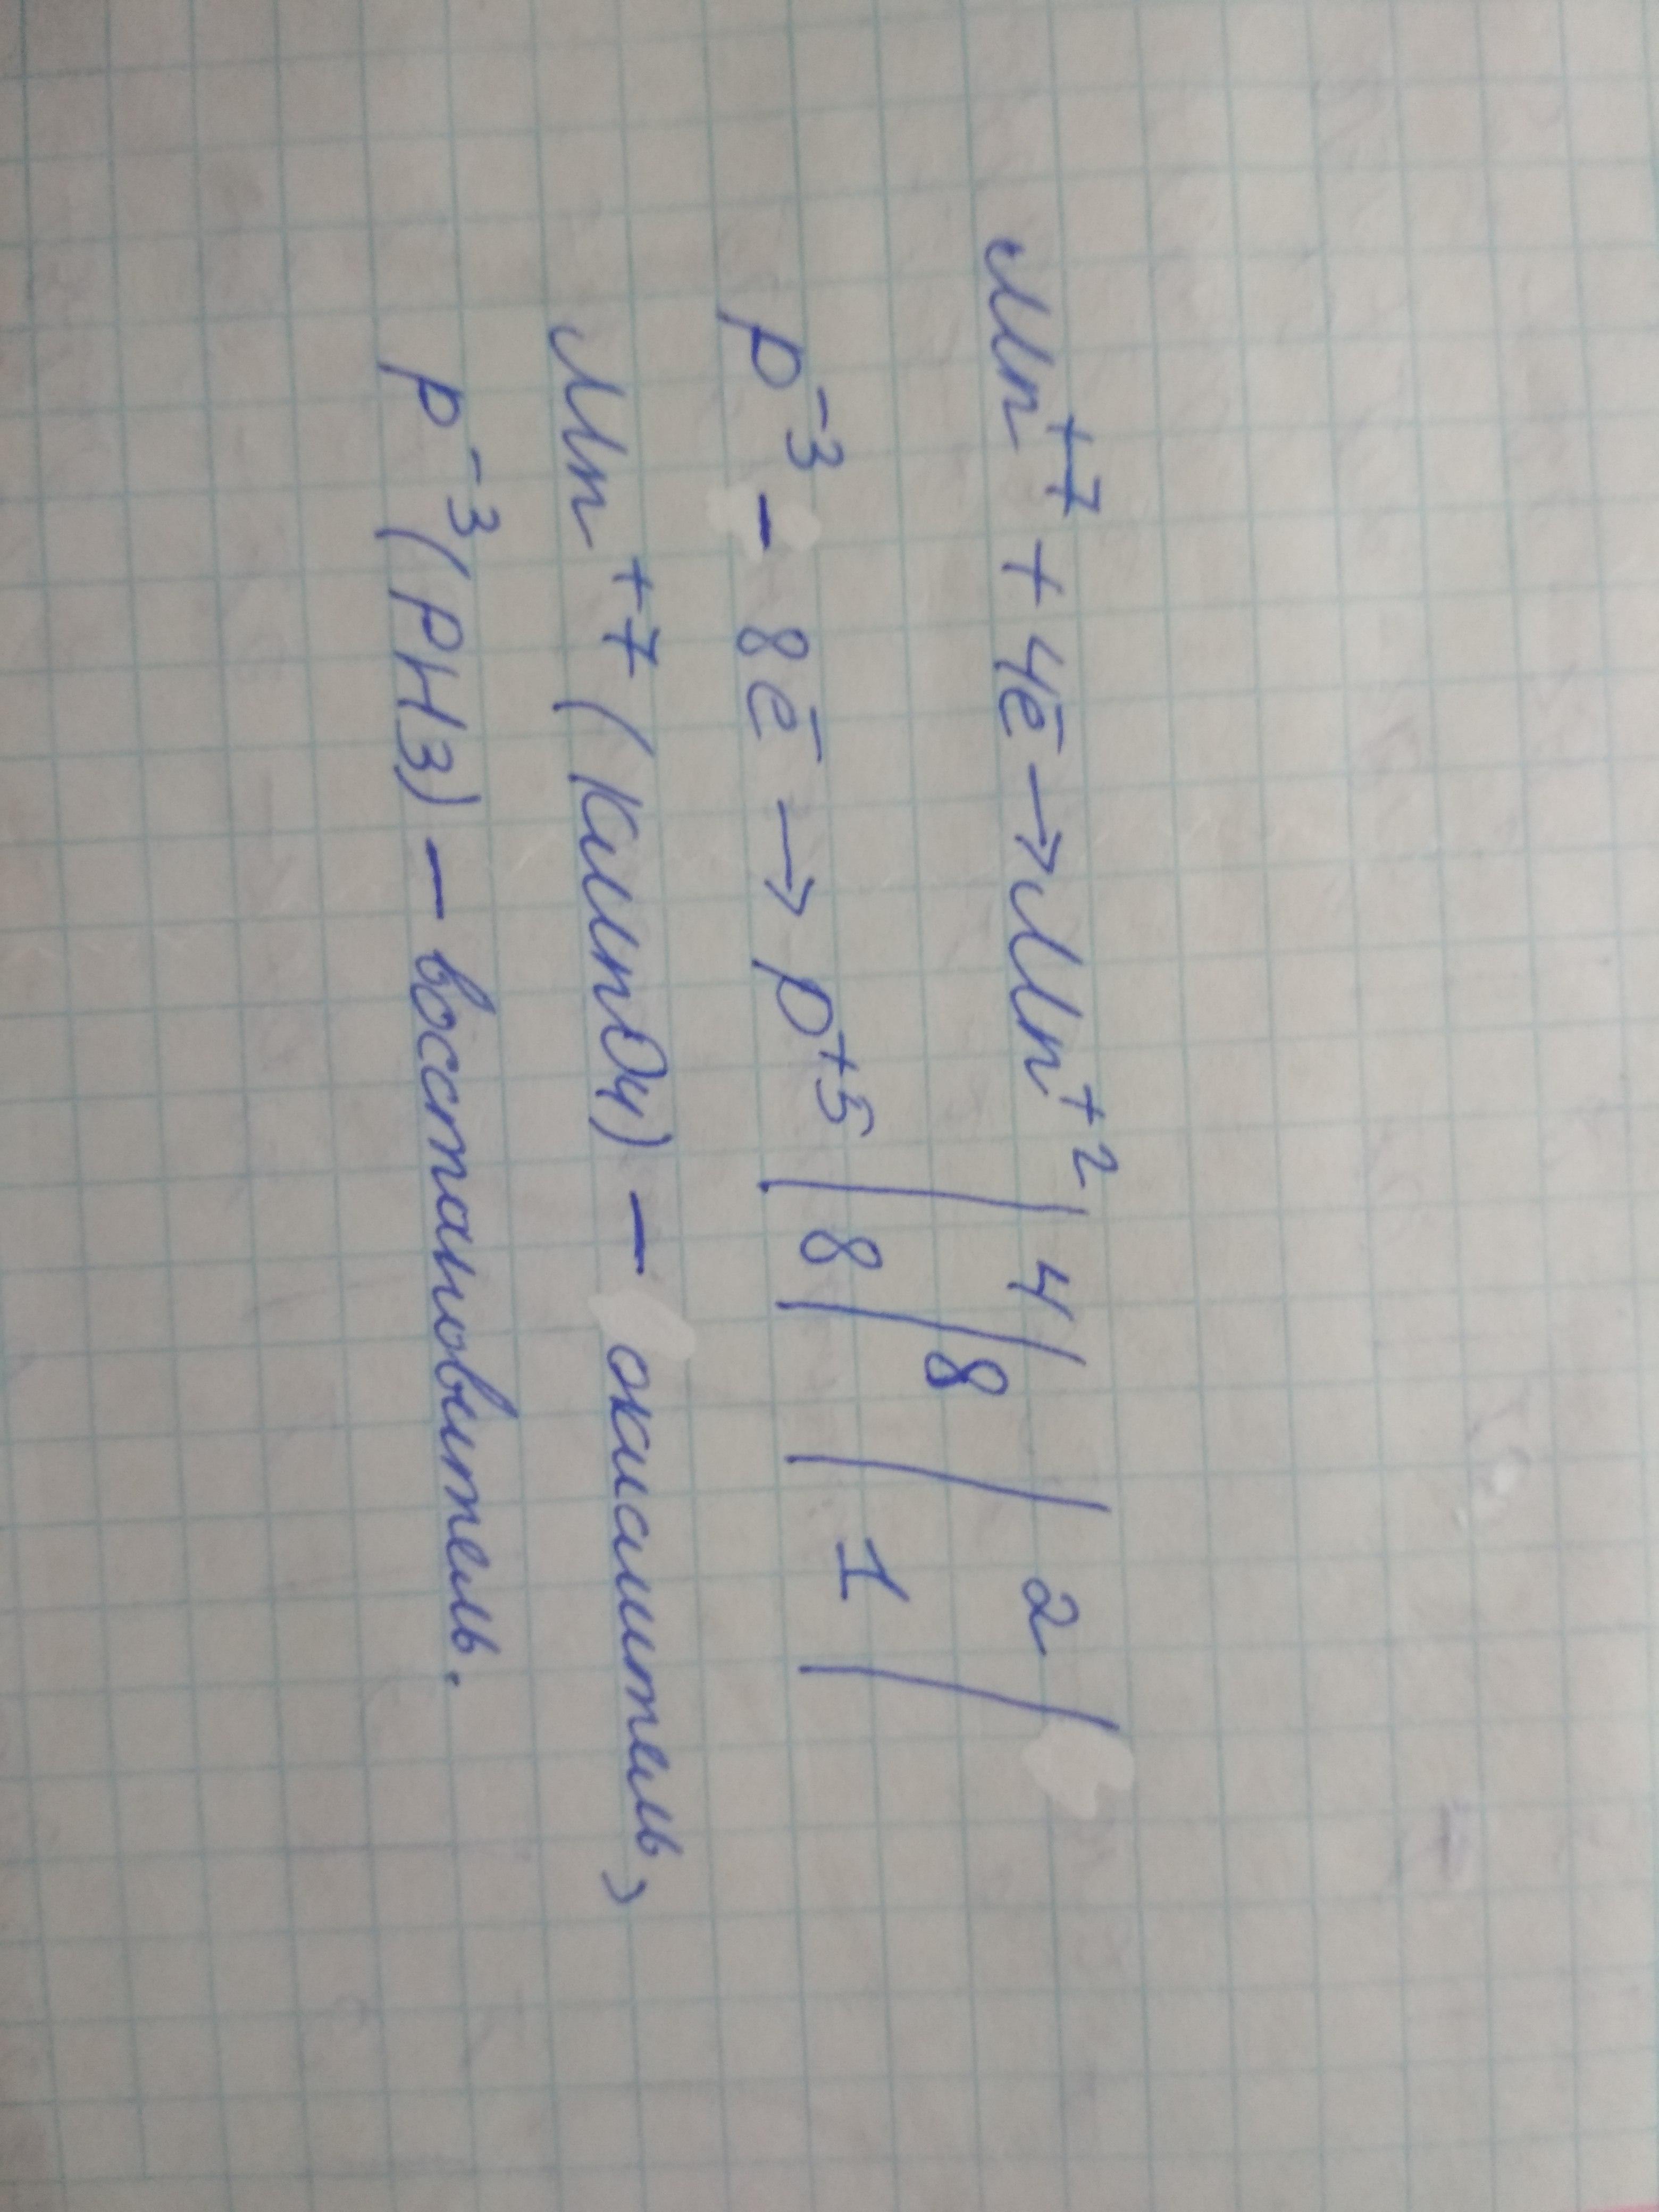 Mn⁺⁷ + 4ē → Mn⁺² | 4 | 8 | 2 |
P⁻³ - 8ē → P⁺⁵ | 8 | | 1 |
Mn⁺⁷ (KMnO₄) – окислитель,
P⁻³ (PH₃) – восстановитель.